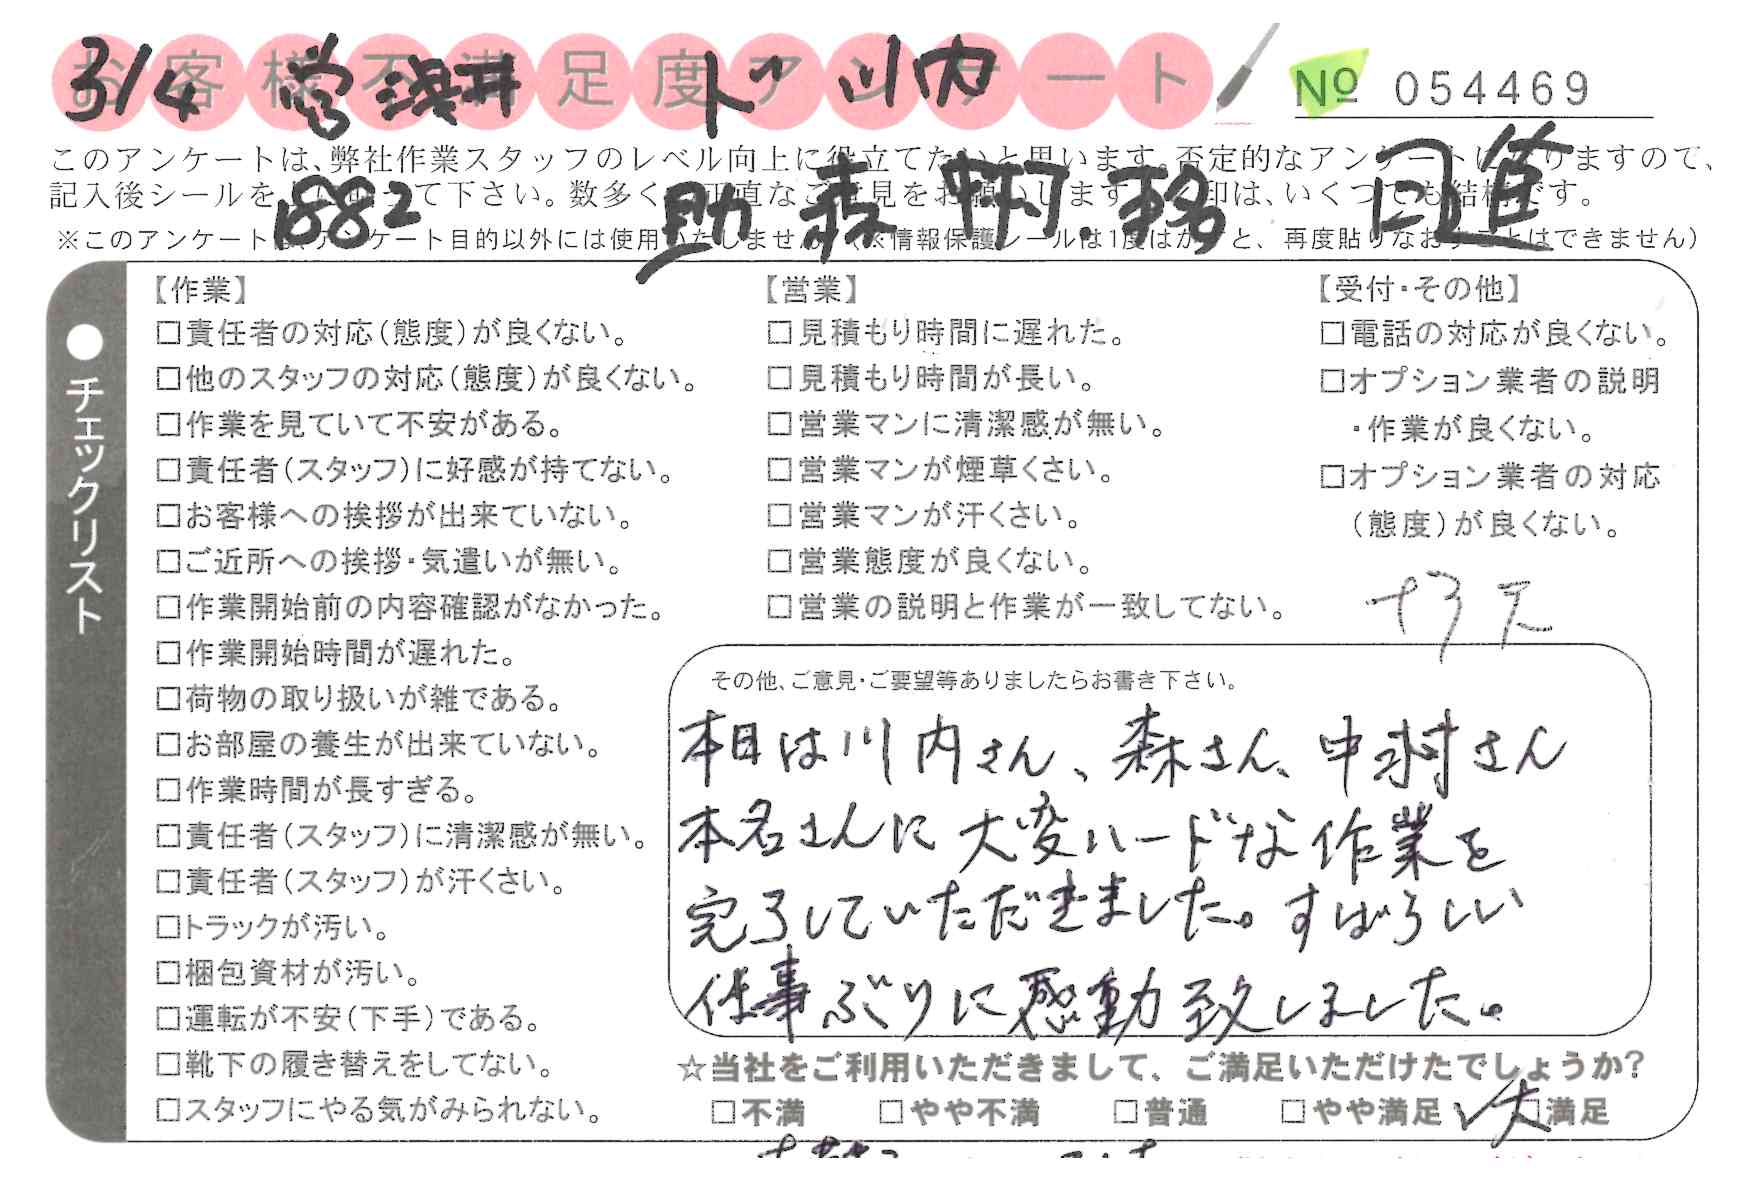 お客様不満足度アンケート
3/4 営 浅井 ド 川内
№ 054469
このアンケートは、弊社作業スタッフのレベル向上に役立てたいと思います。否定的なアンケートになりますので、
記入後シールを上から貼って下さい。数多くの正直なご意見をお願いします。レ印は、いくつでも結構です。
1882 助 森 中村.本名 日進
※このアンケートは、アンケート目的以外には使用いたしません。(※情報保護シールは1度はがすと、再度貼りなおすことはできません)
●チェックリスト
【作業】
□責任者の対応(態度)が良くない。
□他のスタッフの対応(態度)が良くない。
□作業を見ていて不安がある。
□責任者(スタッフ)に好感が持てない。
□お客様への挨拶が出来ていない。
□ご近所への挨拶・気遣いが無い。
□作業開始前の内容確認がなかった。
□作業開始時間が遅れた。
□荷物の取り扱いが雑である。
□お部屋の養生が出来ていない。
□作業時間が長すぎる。
□責任者(スタッフ)に清潔感が無い。
□責任者(スタッフ)が汗くさい。
□トラックが汚い。
□梱包資材が汚い。
□運転が不安(下手)である。
□靴下の履き替えをしてない。
□スタッフにやる気がみられない。
【営業】
□見積もり時間に遅れた。
□見積もり時間が長い。
□営業マンに清潔感が無い。
□営業マンが煙草くさい。
□営業マンが汗くさい。
□営業態度が良くない。
□営業の説明と作業が一致してない。
【受付・その他】
□電話の対応が良くない。
□オプション業者の説明
・作業が良くない。
□オプション業者の対応
(態度)が良くない。
その他、ご意見・ご要望等ありましたらお書き下さい。
本日は川内さん、森さん、中村さん
本名さんに大変ハードな作業を
完了していただきました。すばらしい
仕事ぶりに感動致しました。
☆当社をご利用いただきまして、ご満足いただけたでしょうか?
□不満 □やや不満 □普通 □やや満足 ✓大 □満足